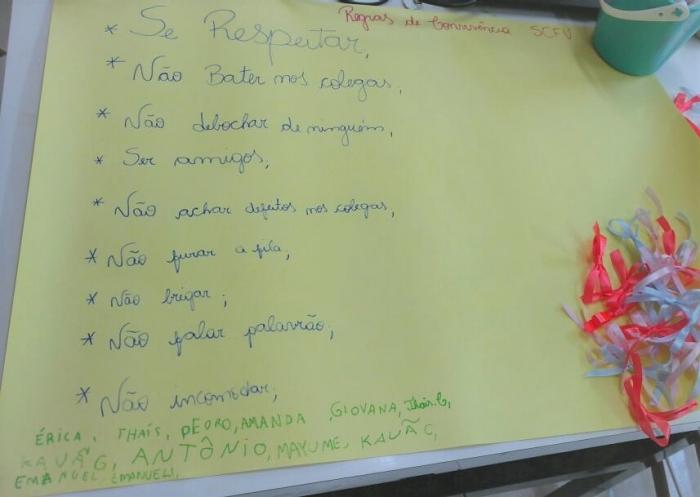 Regras de Convivência SCFV
* Se Respeitar,
* Não Bater nos colegas,
* Não debochar de ninguém,
* Ser amigos,
* Não achar defeitos nos colegas,
* Não furar a fila,
* Não brigar;
* Não falar palavrão,
* Não incomodar,
ÉRICA, THAÍS, PEDRO, AMANDA, GIOVANA, Thais.C,
KAUÃ G, ANTÔNIO, MAYUME, KAUÃ C,
EMANUEL, EMANUELI,